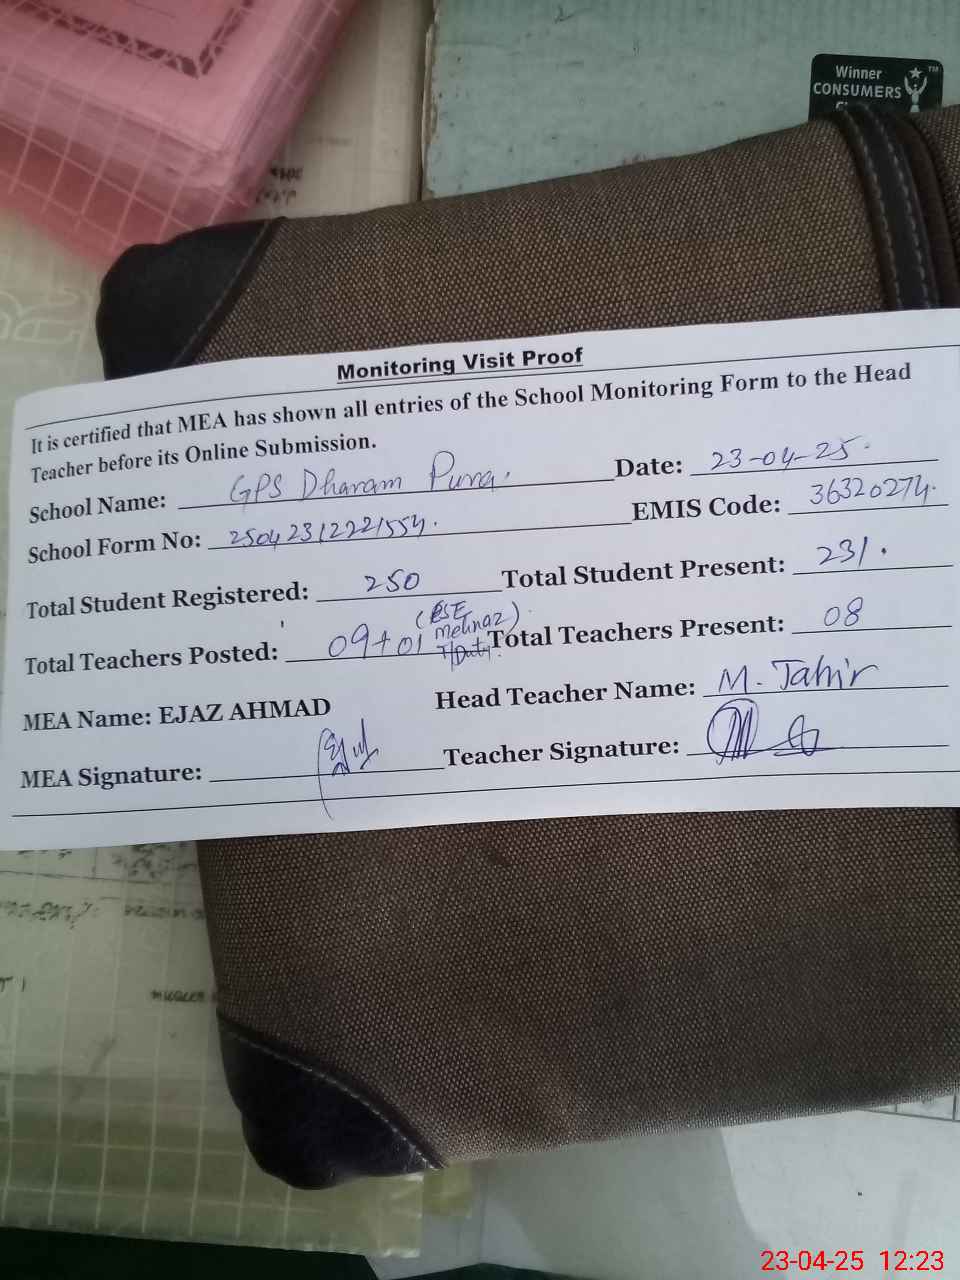 Winner
CONSUMERS
Monitoring Visit Proof
It is certified that MEA has shown all entries of the School Monitoring Form to the Head
Teacher before its Online Submission.
School Name: GPS Dharam Pura. Date: 23-04-25.
School Form No: 25042312221554. EMIS Code: 36320274.
Total Student Registered: 250 Total Student Present: 231.
Total Teachers Posted: 09+01 (PSE Mehnaz) T/Duty. Total Teachers Present: 08
MEA Name: EJAZ AHMAD Head Teacher Name: M. Tahir
MEA Signature: Teacher Signature:
23-04-25 12:23